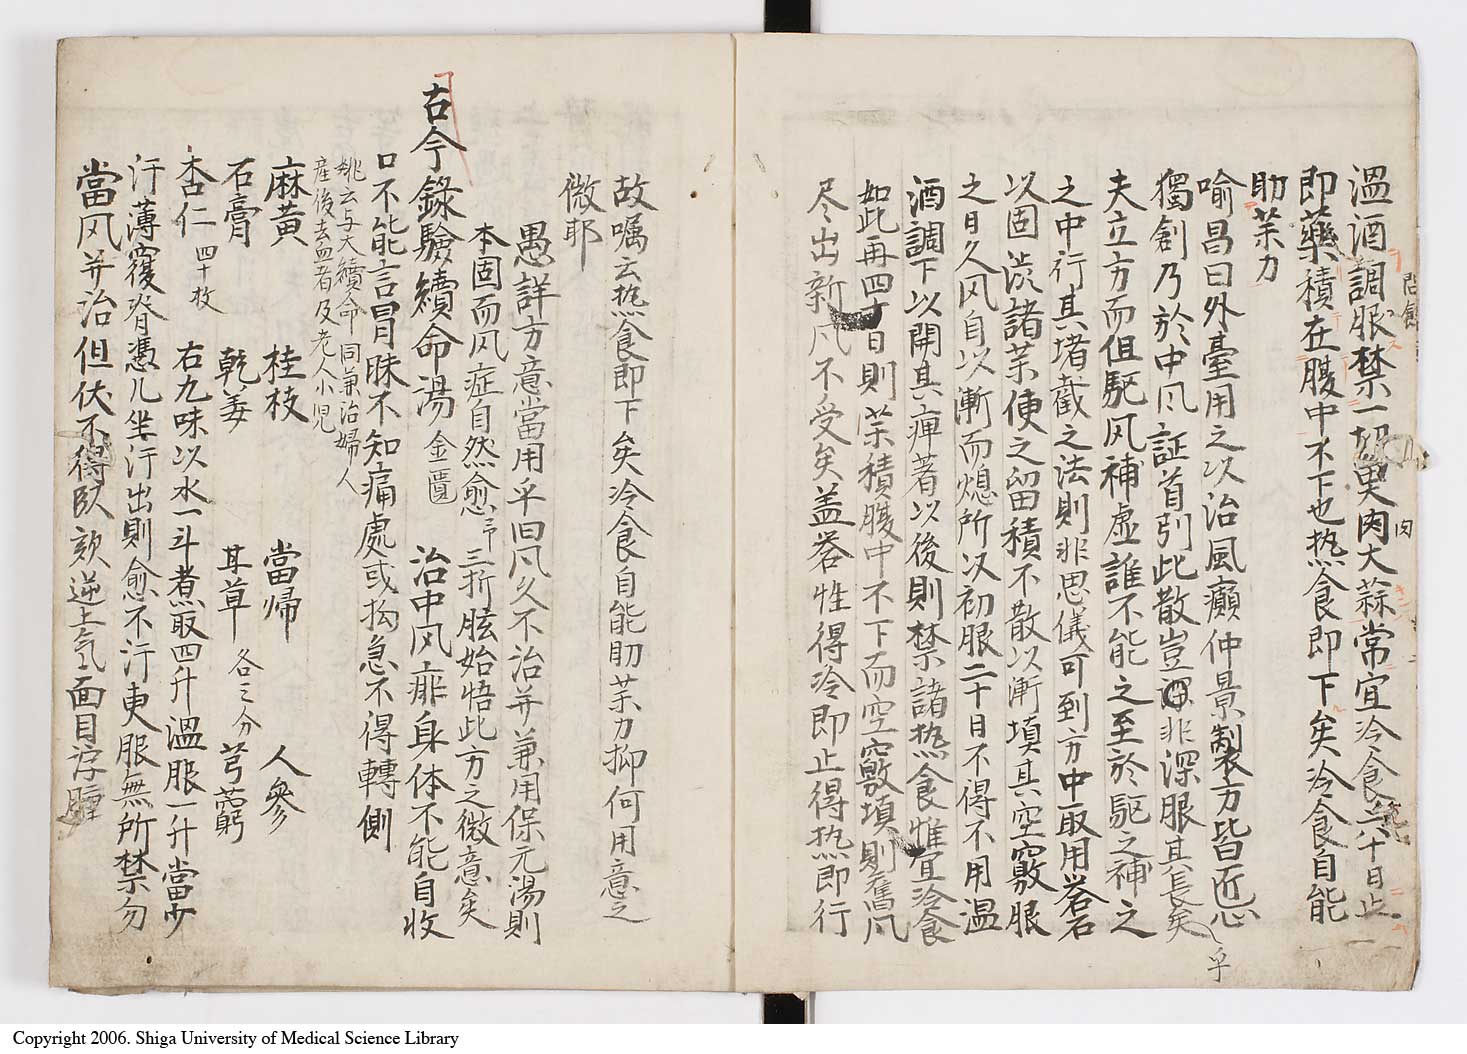 温酒調服禁一切臭肉大蒜常宜冷食六十日止
即藥積在腹中不下也热食即下矣冷食自能
助茱力
喻昌曰外臺用之以治風癲仲景製方皆匠心
獨創乃於中风証首引此散豈深非深服其長矣乎
夫立方而但駈风補虚誰不能之至於駈之補之
之中行其堵截之法則非思儀可到方中取用礬石
以固澁諸茱使之留積不散以漸填其空竅服
之日久风自以漸而熄所以初服二十日不得不用温
酒調下以開其痺著以後則禁諸热食惟宜冷食
如此再四十日則茱積腹中不下而空竅填則奮风
尽出新风不受矣盖礬性得冷即止得热即行
故嘱云热食即下矣冷食自能助茱力抑何用意之
微耶
愚詳方意當用乎旧风久不治并兼用保元湯則
本固而风症自然愈 三折肱始悟此方之微意矣
古今錄驗續命湯 金匱 治中风痱身体不能自收
口不能言冒昧不知痛處或拘急不得轉側
姚云与大續命同兼治婦人
産後去血者及老人小児
麻黄 桂枝 當帰 人參
石膏 乾姜 甘草 各三分 芎藭
杏仁 四十枚 右九味以水一斗煮取四升温服一升當少
汗薄覆脊憑几坐汗出則愈不汗更服無所禁勿
當风并治但伏不得臥欬逆上氣面目浮腫
Copyright 2006. Shiga University of Medical Science Library